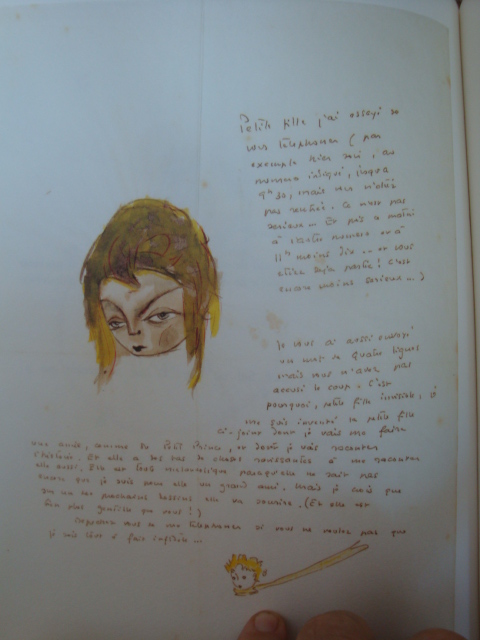 Petite fille j'ai essayé de
vous téléphoner (par
exemple hier soir, au
numéro indiqué, jusque
mais vous n'étiez
pas rentrée. Ce n'est pas
sérieux... Et puis ce matin
à l'autre numéro
11h moins dix... et vous
étiez déjà partie! C'est
encore moins sérieux...)
Je vous ai aussi envoyé
un mot de quatre lignes
mais vous n'avez pas
accusé le coup. C'est
pourquoi, petite fille invisible, je
me suis inventé la petite fille
ci-jointe dont je vais me faire
une amie, comme du Petit Prince, et dont je vais raconter
l'histoire. Et elle a des tas de choses à me raconter
elle aussi. Elle est très mélancolique parce qu'elle ne sait pas
encore que je suis pour elle un grand ami. Mais je crois que
dessins elle va sourire. (Et elle est
bien plus gentille que vous!)
vous à me téléphoner si vous ne voulez pas que
je sois tout à fait infidèle...